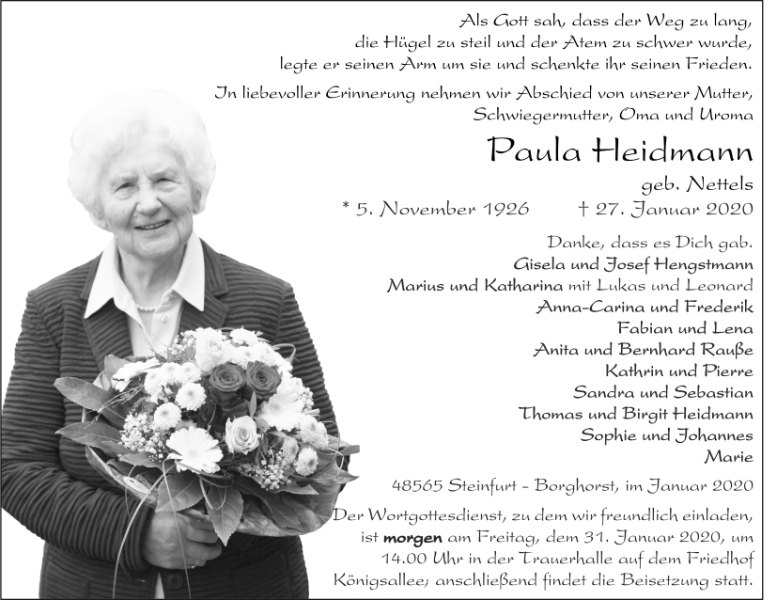 Als Gott sah, dass der Weg zu lang,
die Hügel zu steil und der Atem zu schwer wurde,
legte er seinen Arm um sie und schenkte ihr seinen Frieden.
In liebevoller Erinnerung nehmen wir Abschied von unserer Mutter,
Schwiegermutter, Oma und Uroma
Paula Heidmann
geb. Nettels
* 5. November 1926 † 27. Januar 2020
Danke, dass es Dich gab.
Gisela und Josef Hengstmann
Marius und Katharina mit Lukas und Leonard
Anna-Carina und Frederik
Fabian und Lena
Anita und Bernhard Rauße
Kathrin und Pierre
Sandra und Sebastian
Thomas und Birgit Heidmann
Sophie und Johannes
Marie
48565 Steinfurt - Borghorst, im Januar 2020
Der Wortgottesdienst, zu dem wir freundlich einladen,
ist morgen am Freitag, dem 31. Januar 2020, um
14.00 Uhr in der Trauerhalle auf dem Friedhof
Königsallee; anschließend findet die Beisetzung statt.